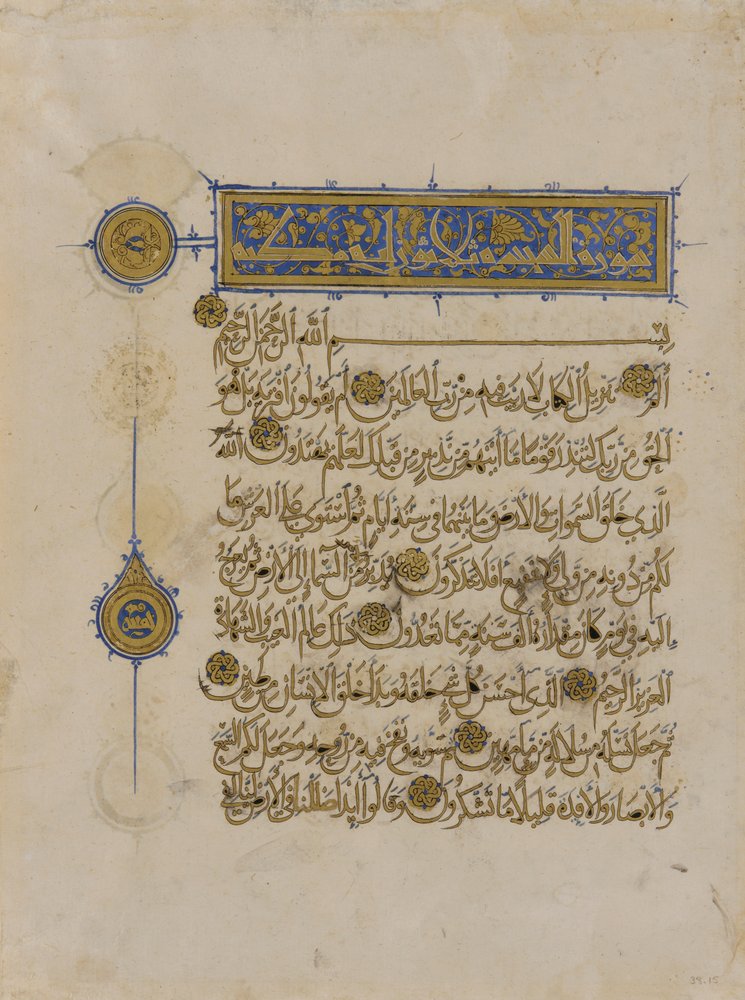 سورة السجدة ثلثون اية مكية
بسم الله الرحمن الرحيم
الم تنزيل الكتاب لا ريب فيه من رب العالمين أم يقولون افتريه بل هو
الحق من ربك لتنذر قوما ما أتيهم من نذير من قبلك لعلهم يهتدون الله
الذي خلق السموات والأرض وما بينهما في ستة أيام ثم استوى على العرش ما
لكم من دونه من ولي ولا شفيع أفلا تتذكرون يدبر الأمر من السماء إلى الأرض ثم يعرج
إليه في يوم كان مقداره ألف سنة مما تعدون ذلك عالم الغيب والشهادة
العزيز الرحيم الذي أحسن كل شيء خلقه وبدأ خلق الإنسان من طين
ثم جعل نسله من سلالة من ماء مهين ثم سويه ونفخ فيه من روحه وجعل لكم السمع
والأبصار والأفئدة قليلا ما تشكرون وقالوا أئذا ضللنا في الأرض أئنا لفي
39.15